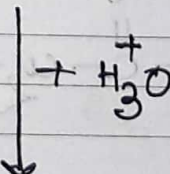 + H₃O⁺